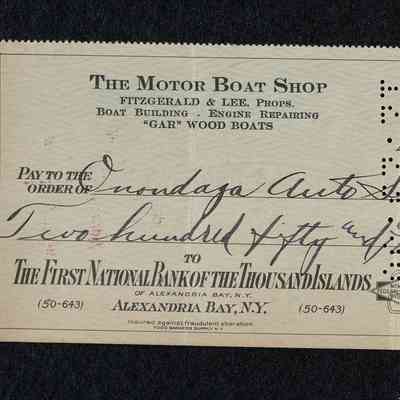 THE MOTOR BOAT SHOP
FITZGERALD & LEE, PROPS.
BOAT BUILDING - ENGINE REPAIRING
"GAR" WOOD BOATS
PAY TO THE
ORDER OF Onondaga Auto
Two hundred fifty and
TO
THE FIRST NATIONAL BANK OF THE THOUSAND ISLANDS
OF ALEXANDRIA BAY, N.Y.
(50-643) ALEXANDRIA BAY, N.Y. (50-643)
Insured against fraudulent alteration